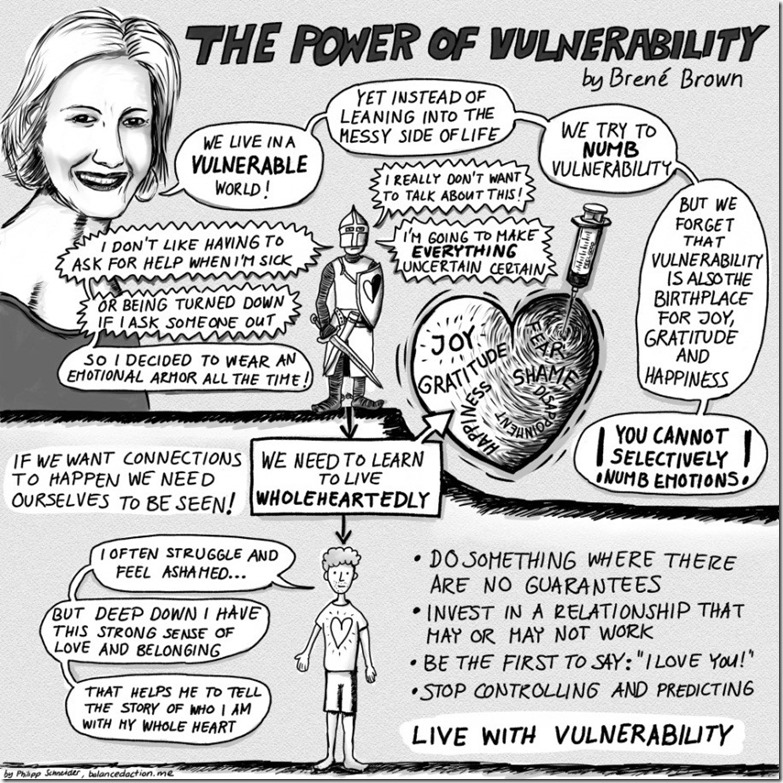 THE POWER OF VULNERABILITY
by Brené Brown
WE LIVE IN A
VULNERABLE
WORLD!
YET INSTEAD OF
LEANING INTO THE
MESSY SIDE OF LIFE
WE TRY TO
NUMB
VULNERABILITY
BUT WE
FORGET
THAT
VULNERABILITY
IS ALSO THE
BIRTHPLACE
FOR JOY,
GRATITUDE
AND
HAPPINESS
! YOU CANNOT !
SELECTIVELY
NUMB EMOTIONS.
I REALLY DON'T WANT
TO TALK ABOUT THIS!
I DON'T LIKE HAVING TO
ASK FOR HELP WHEN I'M SICK
I'M GOING TO MAKE
EVERYTHING
UNCERTAIN CERTAIN
OR BEING TURNED DOWN
IF I ASK SOMEONE OUT
SO I DECIDED TO WEAR AN
EMOTIONAL ARMOR ALL THE TIME!
JOY
GRATITUDE
HAPPINESS
FEAR
SHAME
DISAPPOINTMENT
IF WE WANT CONNECTIONS
TO HAPPEN WE NEED
OURSELVES TO BE SEEN!
WE NEED TO LEARN
TO LIVE
WHOLEHEARTEDLY
I OFTEN STRUGGLE AND
FEEL ASHAMED...
BUT DEEP DOWN I HAVE
THIS STRONG SENSE OF
LOVE AND BELONGING
THAT HELPS ME TO TELL
THE STORY OF WHO I AM
WITH MY WHOLE HEART
• DO SOMETHING WHERE THERE
ARE NO GUARANTEES
• INVEST IN A RELATIONSHIP THAT
MAY OR MAY NOT WORK
• BE THE FIRST TO SAY: "I LOVE YOU!"
• STOP CONTROLLING AND PREDICTING
LIVE WITH VULNERABILITY
by Philipp Schneider, balancedaction.me